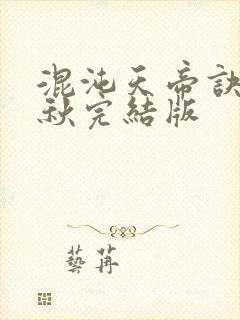 混沌天帝訣
秋完結版
藝苒